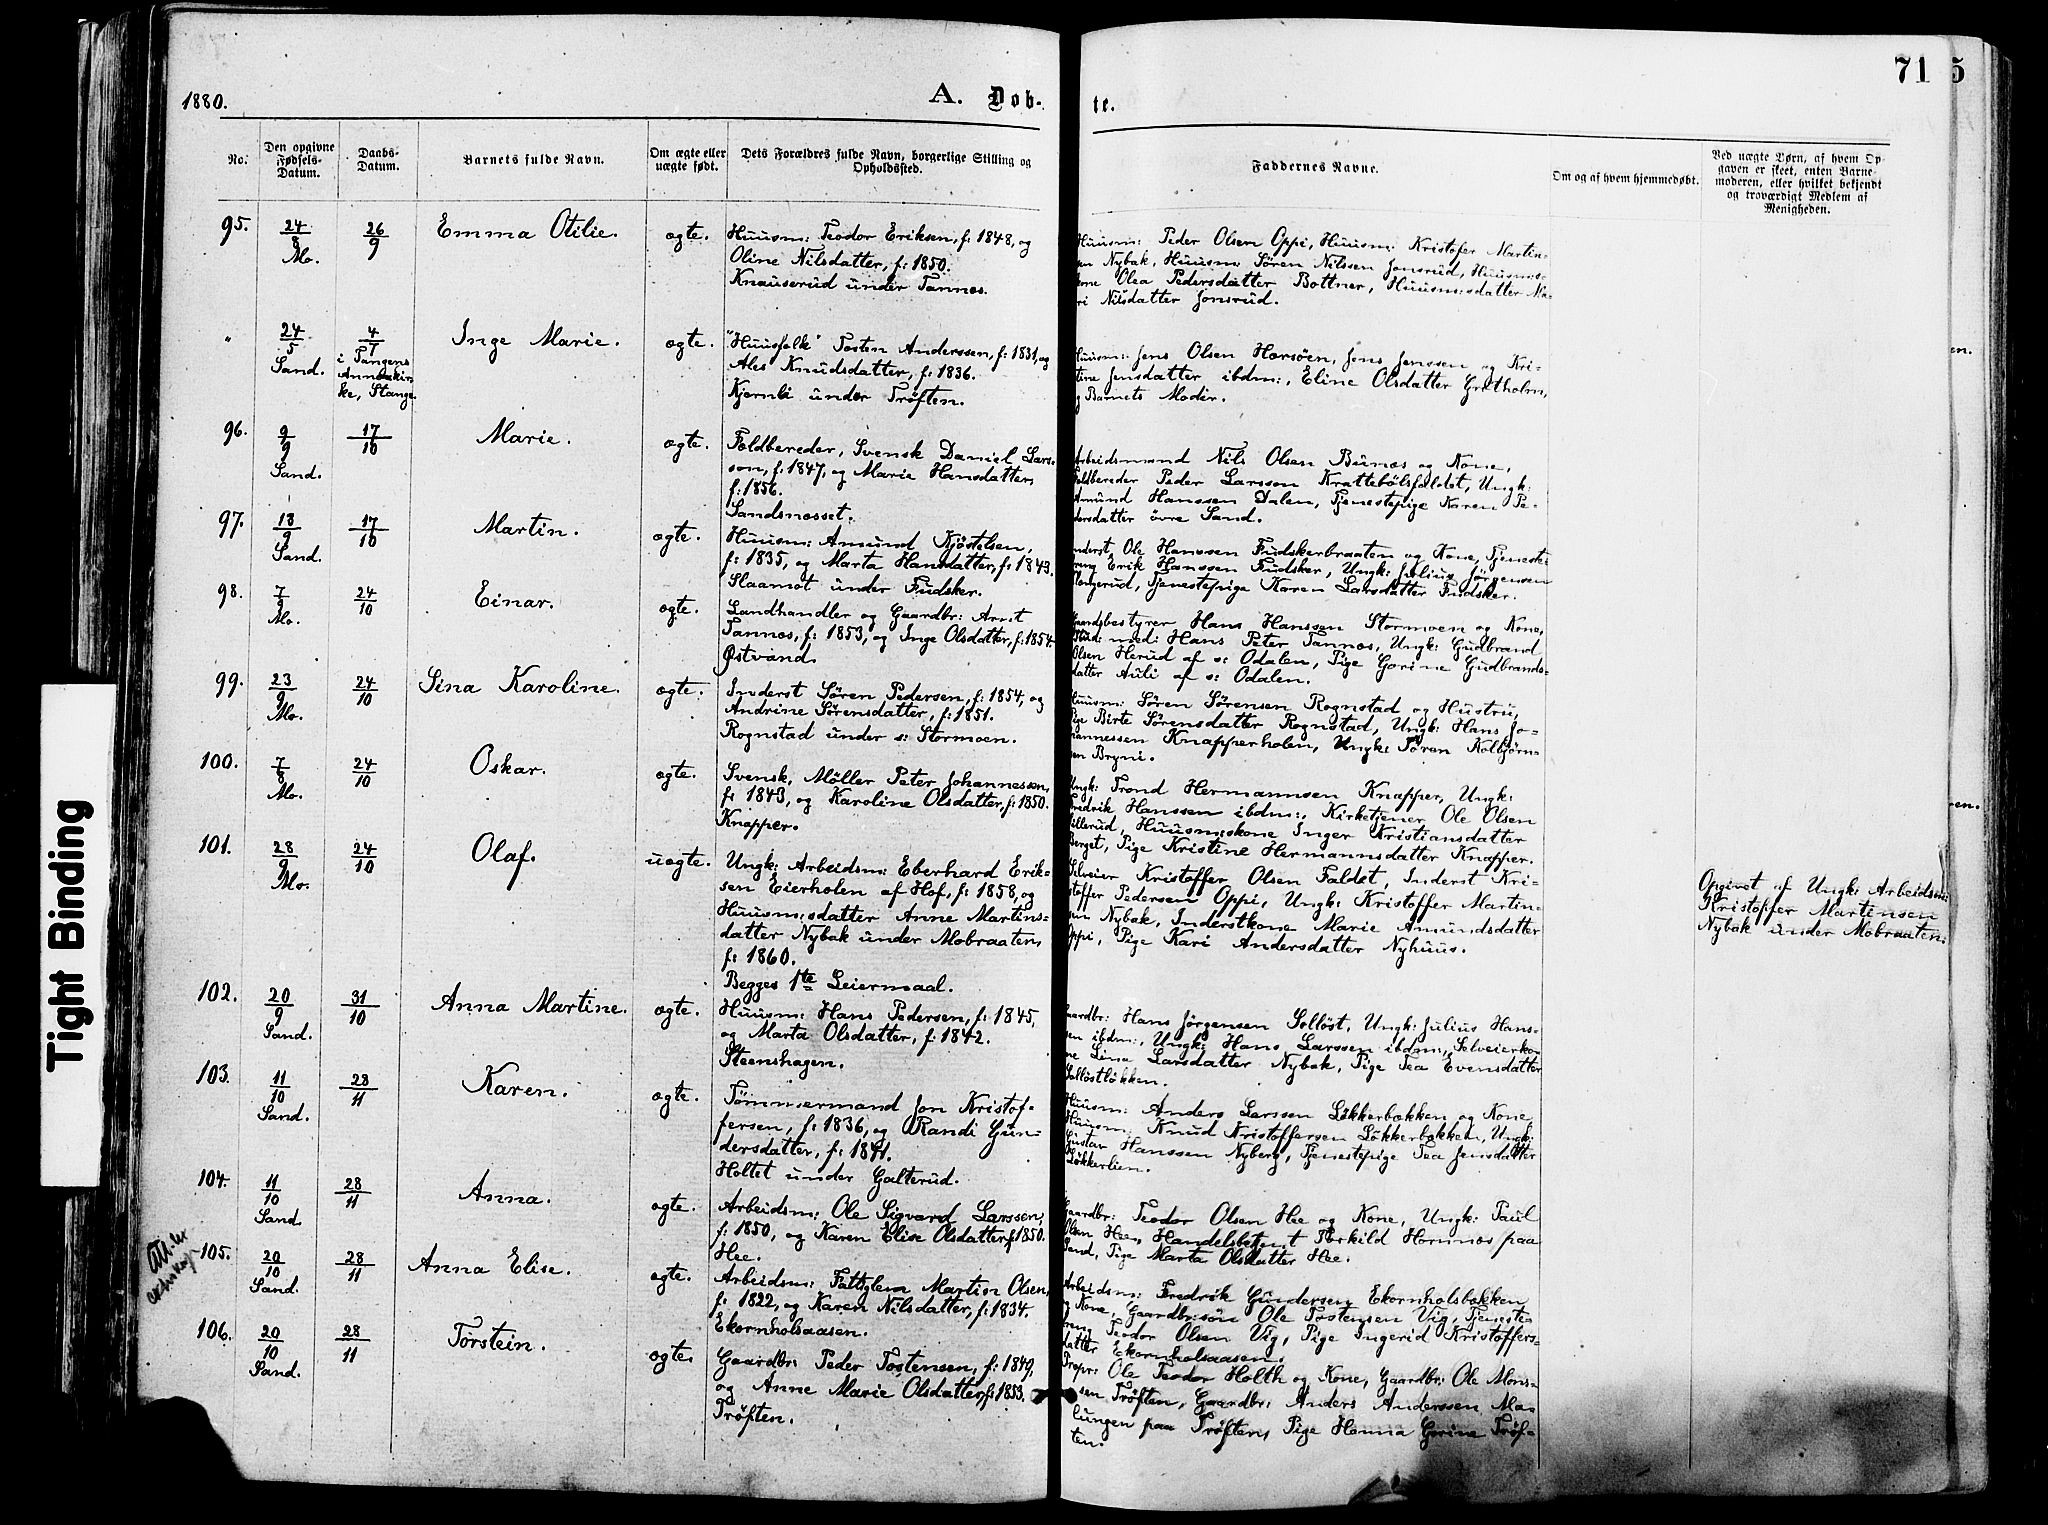 71
5
1880.
A. Døb-
te.
No.
Den opgivne
Fødsels-
Datum.
Daabs-
Datum.
Barnets fulde Navn.
Om ægte eller
uægte født.
Dets Forældres fulde Navn, borgerlige Stilling og
Opholdssted.
Faddernes Navne.
Om og af hvem hjemmedøbt.
Ved uægte Børn, af hvem Op-
gaven er skeet, enten Barne-
moderen, eller hvilket bekjendt
og troværdigt Medlem af
Menigheden.
95.
24/8
Mo.
26/9
Emma Otilie.
ægte.
Huusm: Teodor Eriksen, f: 1848, og
Oline Nilsdatter, f: 1850.
Knauserud under Tannæs.
Huusm: Peder Olsen Oppi, Huusm: Kristofer Martin-
sen Nybak, Huusm: Sören Nilssen Jonsrud, Huusm:s-
kone Olea Pedersdatter Bottner, Huusm:sdatter Ma-
ri Nilsdatter Jonsrud.
"
24/5
Sand.
4/7
i Tangens
Annexkir-
ke, Stange.
Inge Marie.
ægte.
"Huusfolk" Tosten Anderssen, f: 1831, og
Ales Knudsdatter, f: 1836.
Kjernli under Tröften.
Huusm: Jens Olsen Horsöen, Jens Jenssen og Kri-
stine Jensdatter ibdm:, Eline Olsdatter Gretholm,
og Barnets Moder.
96.
9/9
Sand.
17/10
Marie.
ægte.
Foldbereder, Svensk Daniel Lars-
son, f: 1847, og Marie Hansdatter,
f: 1856.
Sandsnæsset.
Arbeidsmand Nils Olsen Bunæs og Kone,
Foldbereder Peder Larssen Krattebölsfaldet, Ungk:
Amund Hanssen Dalen, Tjenestepige Karen Pe-
dersdatter övre Sand.
97.
13/9
Sand.
17/10
Martin.
ægte.
Huusm: Amund Kjöstelsen,
f: 1835, og Marta Hansdatter, f: 1843.
Slaamot under Fudsker.
Inderst Ole Hanssen Fudskerbraaten og Kone, Tjeneste-
dreng Erik Hanssen Fudsker, Ungk: Julius Jörgensen
Slongerud, Tjenestepige Karen Larsdatter Fudsker.
98.
7/9
Mo.
24/10
Einar.
ægte.
Landhandler og Gaardbr: Arnt
Tannæs, f: 1853, og Inge Olsdatter, f: 1854.
Østvand.
Gaardsbestyrer Hans Hanssen Stormoen og Kone,
Stud: med: Hans Peter Tannæs, Ungk: Gudbrand
Olsen Herud af s: Odalen, Pige Gorine Gudbrands-
datter Auli af s: Odalen.
99.
23/9
Mo.
24/10
Sina Karoline.
ægte.
Inderst Sören Pedersen, f: 1854, og
Andrine Sörensdatter, f: 1851.
Rognstad under s: Stormoen.
Huusm: Sören Sörensen Rognstad og Hustru,
Pige Birte Sörensdatter Rognstad, Ungk: Hans Jo-
hannessen Knapperholen, Ungk: Sören Kolbjörn-
sen Bryni.
100.
7/8
Mo.
24/10
Oskar.
ægte.
Svensk, Möller Peter Johannesson,
f: 1843, og Karoline Olsdatter, f: 1850.
Knapper.
Ungk: Trond Hermannsen Knapper, Ungk:
Fredrik Hanssen ibdm:, Kirketjener Ole Olsen
Lillerud, Huusm:skone Inger Kristiansdatter
Berget, Pige Kristine Hermannsdatter Knapper.
101.
28/9
Mo.
24/10
Olaf.
uægte.
Ungk: Arbeidsm: Eberhard Erik-
sen Eierholen af Hof, f: 1858, og
Huusm:sdatter Anne Martins-
datter Nybak under Mobraaten,
f: 1860.
Begges 1te Leiermaal.
Selveier Kristoffer Olsen Faldet, Inderst Kri-
stoffer Pedersen Oppi, Ungk: Kristoffer Martin-
sen Nybak, Inderstkone Marie Amundsdatter
Oppi, Pige Kari Andersdatter Nyhuus.
Opgivet af Ungk: Arbeidsm:
Kristoffer Martinsen
Nybak under Mobraaten.
102.
20/9
Sand.
31/10
Anna Martine.
ægte.
Huusm: Hans Pedersen, f: 1845,
og Marta Olsdatter, f: 1842.
Steenshagen.
Gaardbr: Hans Jörgensen Solløst, Ungk: Julius Hans-
sen ibdm:, Ungk: Hans Larssen ibdm:, Selveierko-
ne Lina Larsdatter Nybak, Pige Tea Evensdatter
Solløstløkken.
103.
11/10
Sand.
28/11
Karen.
ægte.
Tömmermand Jon Kristof-
fersen, f: 1836, og Randi Gun-
dersdatter, f: 1841.
Holtet under Galterud.
Huusm: Anders Larssen Lökkerbækken og Kone,
Huusm: Knud Kristoffersen Lökkerbækken, Ungk:
Gustav Hanssen Nyberg, Tjenestepige Tea Jensdatter
Lökkerlien.
104.
11/10
Sand.
28/11
Anna.
ægte.
Arbeidsm: Ole Sigvard Larssen,
f: 1850, og Karen Elise Olsdatter, f: 1850.
Hee.
Gaardbr: Teodor Olsen Hee og Kone, Ungk: Paul
Olsen Hee, Handelsbetjent Torkild Hornnæs paa
Sand, Pige Marta Olsdatter Hee.
105.
20/10
Sand.
28/11
Anna Elise.
ægte.
Arbeidsm: Fattglem Martin Olsen,
f: 1822, og Karen Nilsdatter, f: 1834.
Ekornholsaasen.
Arbeidsm: Fredrik Gundersen Ekornholsbækken
og Kone, Gaardbr:sön Ole Tostensen Vig, Tjeneste-
dreng Teodor Olsen Vig, Pige Ingerid Kristoffers-
datter Ekornholsaasen.
106.
20/10
Sand.
28/11
Torstein.
ægte.
Gaardbr: Peder Tostensen, f: 1849,
og Anne Marie Olsdatter, f: 1853.
Tröften.
Propr: Ole Teodor Holth og Kone, Gaardbr: Ole Mons-
sen Tröften, Gaardbr: Anders Anderssen Ma-
lungen paa Tröften, Pige Hanna Gorine Tröf-
ten.
Tight Binding